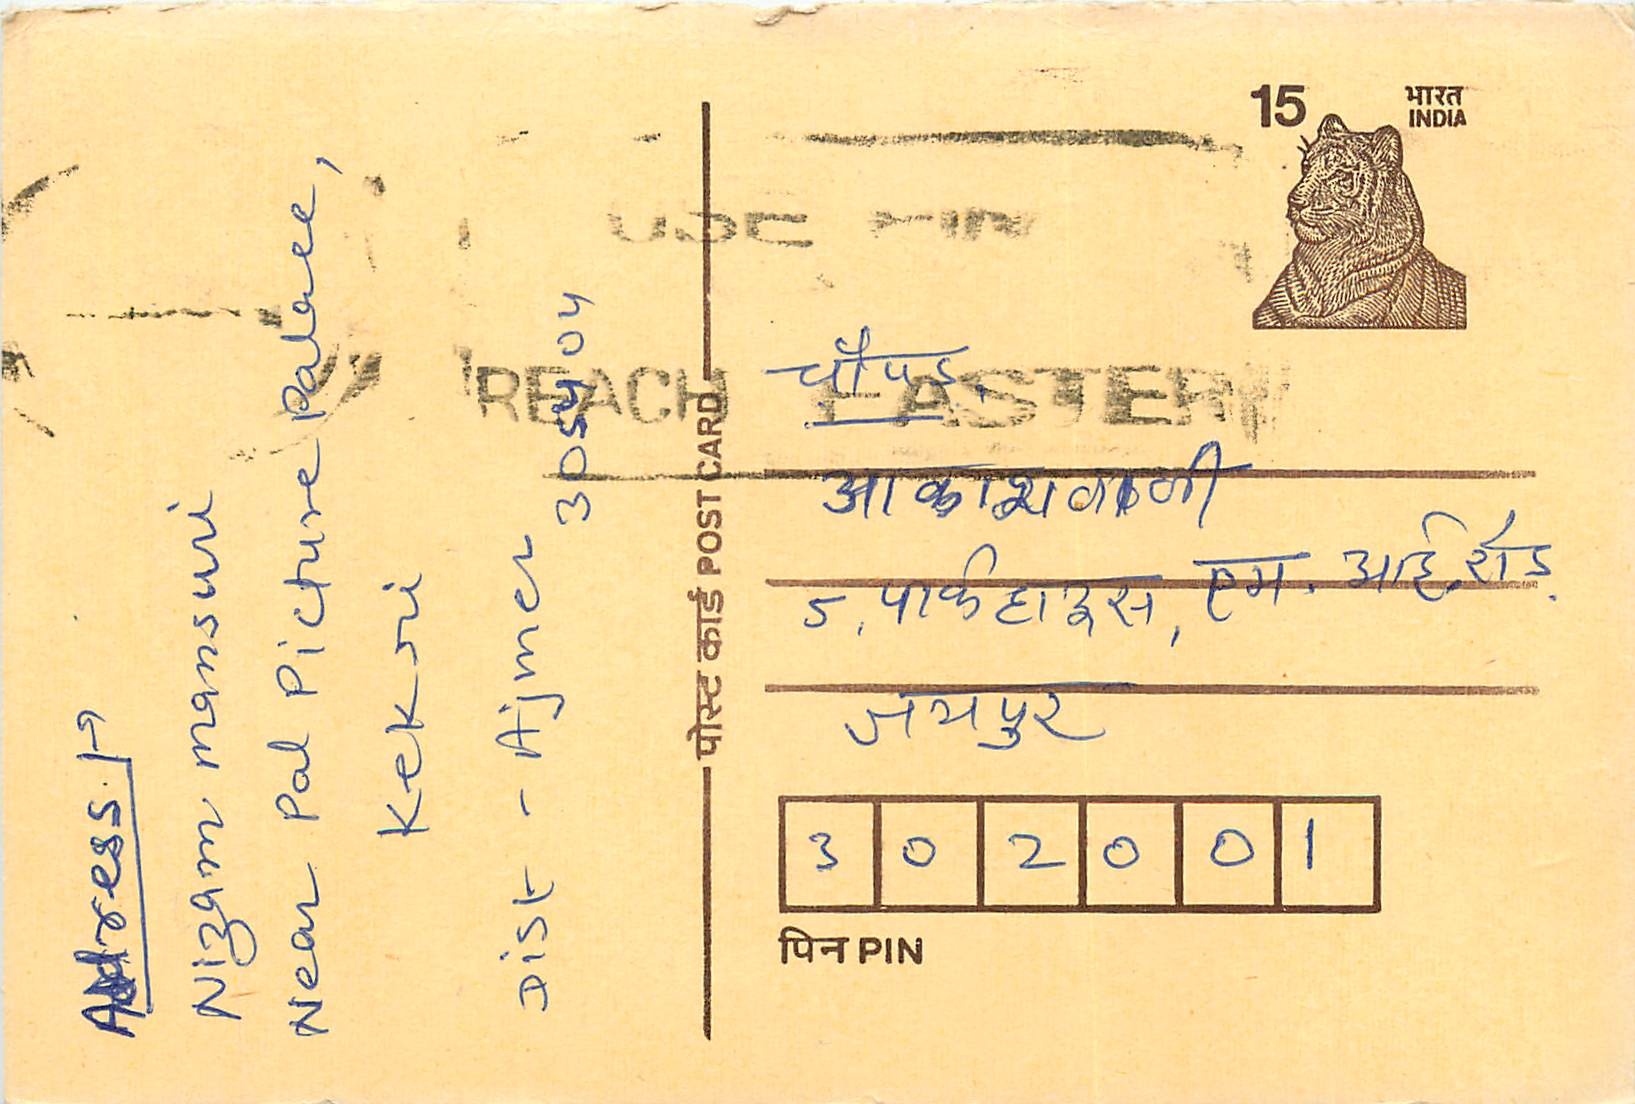 Address :-
Nizam mansuri
Near Pal Picture palace,
Kekri
Dist - Ajmer
305404
पोस्ट कार्ड POST CARD
15
भारत
INDIA
USE PIN
REACH FASTER
चौपड़
आकाशवाणी
5, पार्क हाउस, एम. आई. रोड.
जयपुर
3 0 2 0 0 1
पिन PIN